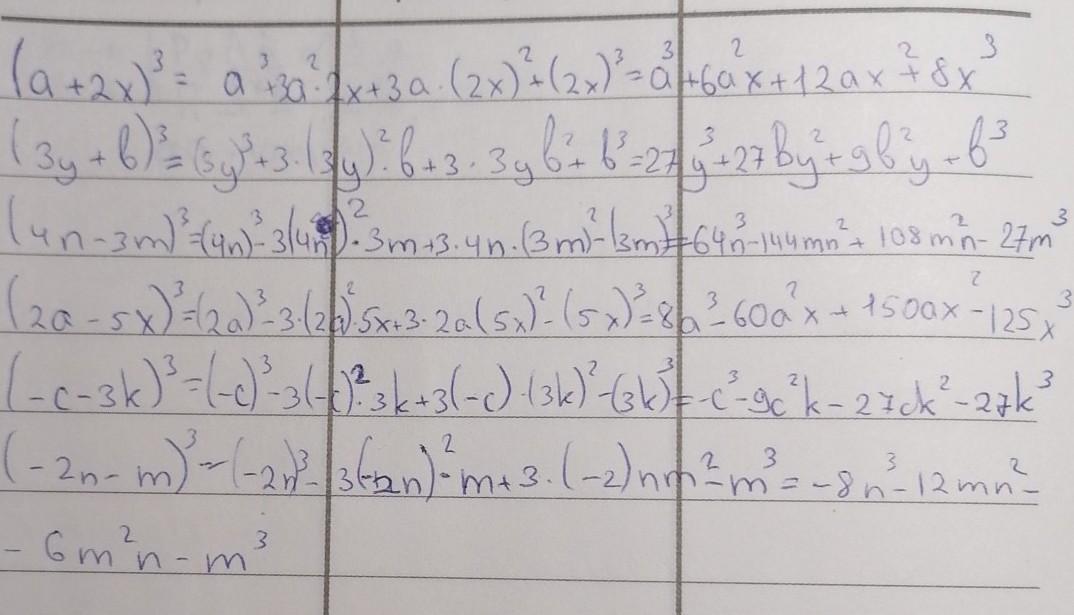 (a+2x)³ = a³+3a²·2x+3a·(2x)²+(2x)³=a³+6a²x+12ax²+8x³
(3y+b)³=(3y)³+3·(3y)²·b+3·3yb²+b³=27y³+27by²+9b²y+b³
(4n-3m)³=(4n)³-3(4n)²·3m+3·4n·(3m)²-(3m)³=64n³-144mn²+108m²n-27m³
(2a-5x)³=(2a)³-3·(2a)²·5x+3·2a(5x)²-(5x)³=8a³-60a²x+150ax²-125x³
(-c-3k)³=(-c)³-3(-c)²·3k+3(-c)·(3k)²-(3k)³=-c³-9c²k-27ck²-27k³
(-2n-m)³=(-2n)³-3(-2n)²·m+3·(-2)nm²-m³=-8n³-12mn²-
-6m²n-m³